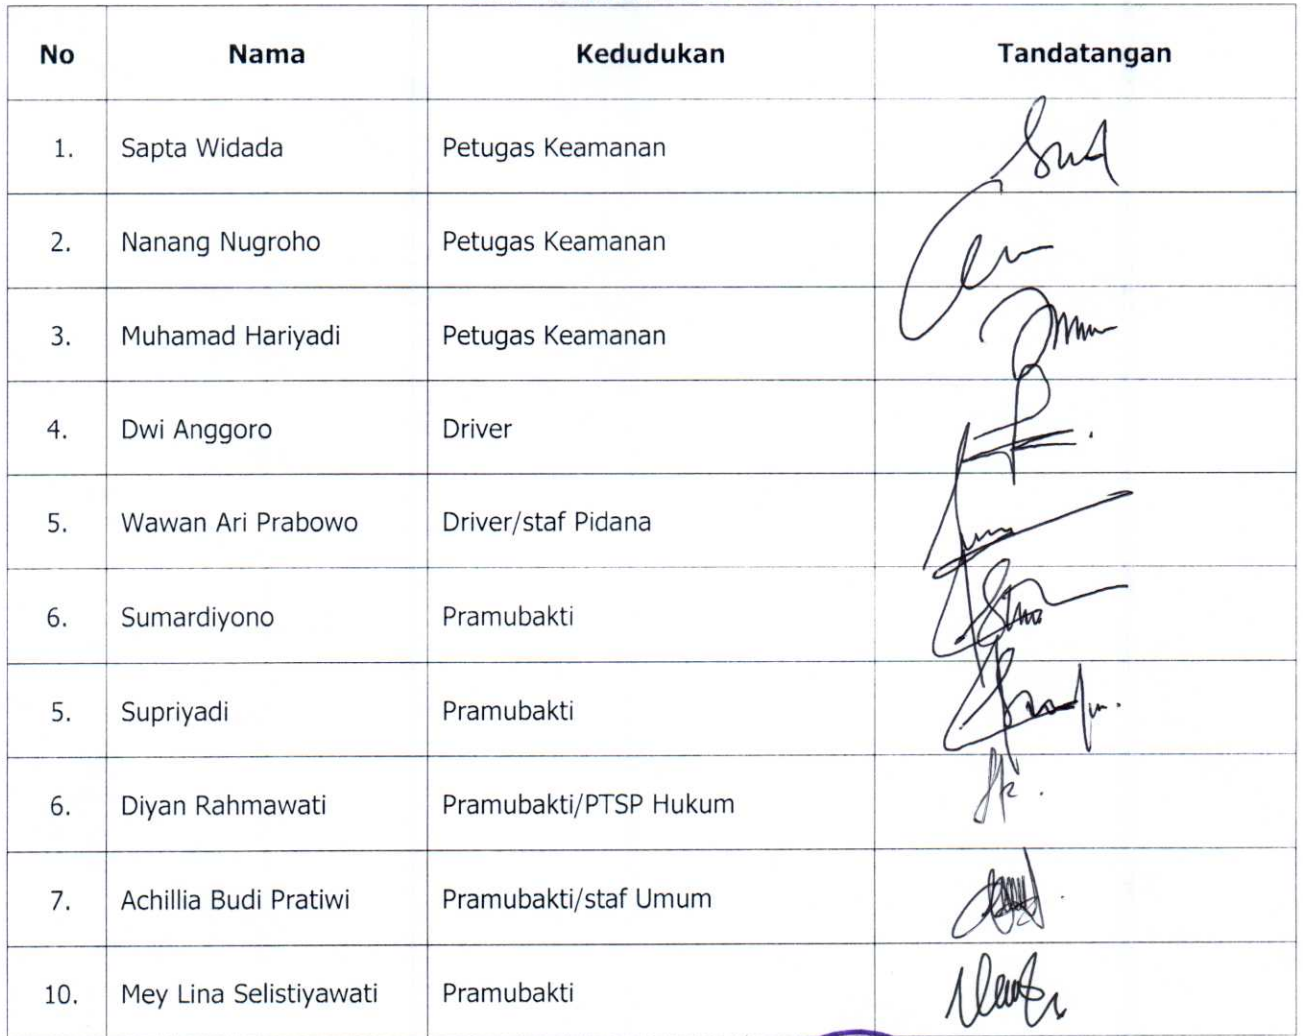 No Nama Kedudukan Tandatangan
1. Sapta Widada Petugas Keamanan
2. Nanang Nugroho Petugas Keamanan
3. Muhamad Hariyadi Petugas Keamanan
4. Dwi Anggoro Driver
5. Wawan Ari Prabowo Driver/staf Pidana
6. Sumardiyono Pramubakti
5. Supriyadi Pramubakti
6. Diyan Rahmawati Pramubakti/PTSP Hukum
7. Achillia Budi Pratiwi Pramubakti/staf Umum
10. Mey Lina Selistiyawati Pramubakti